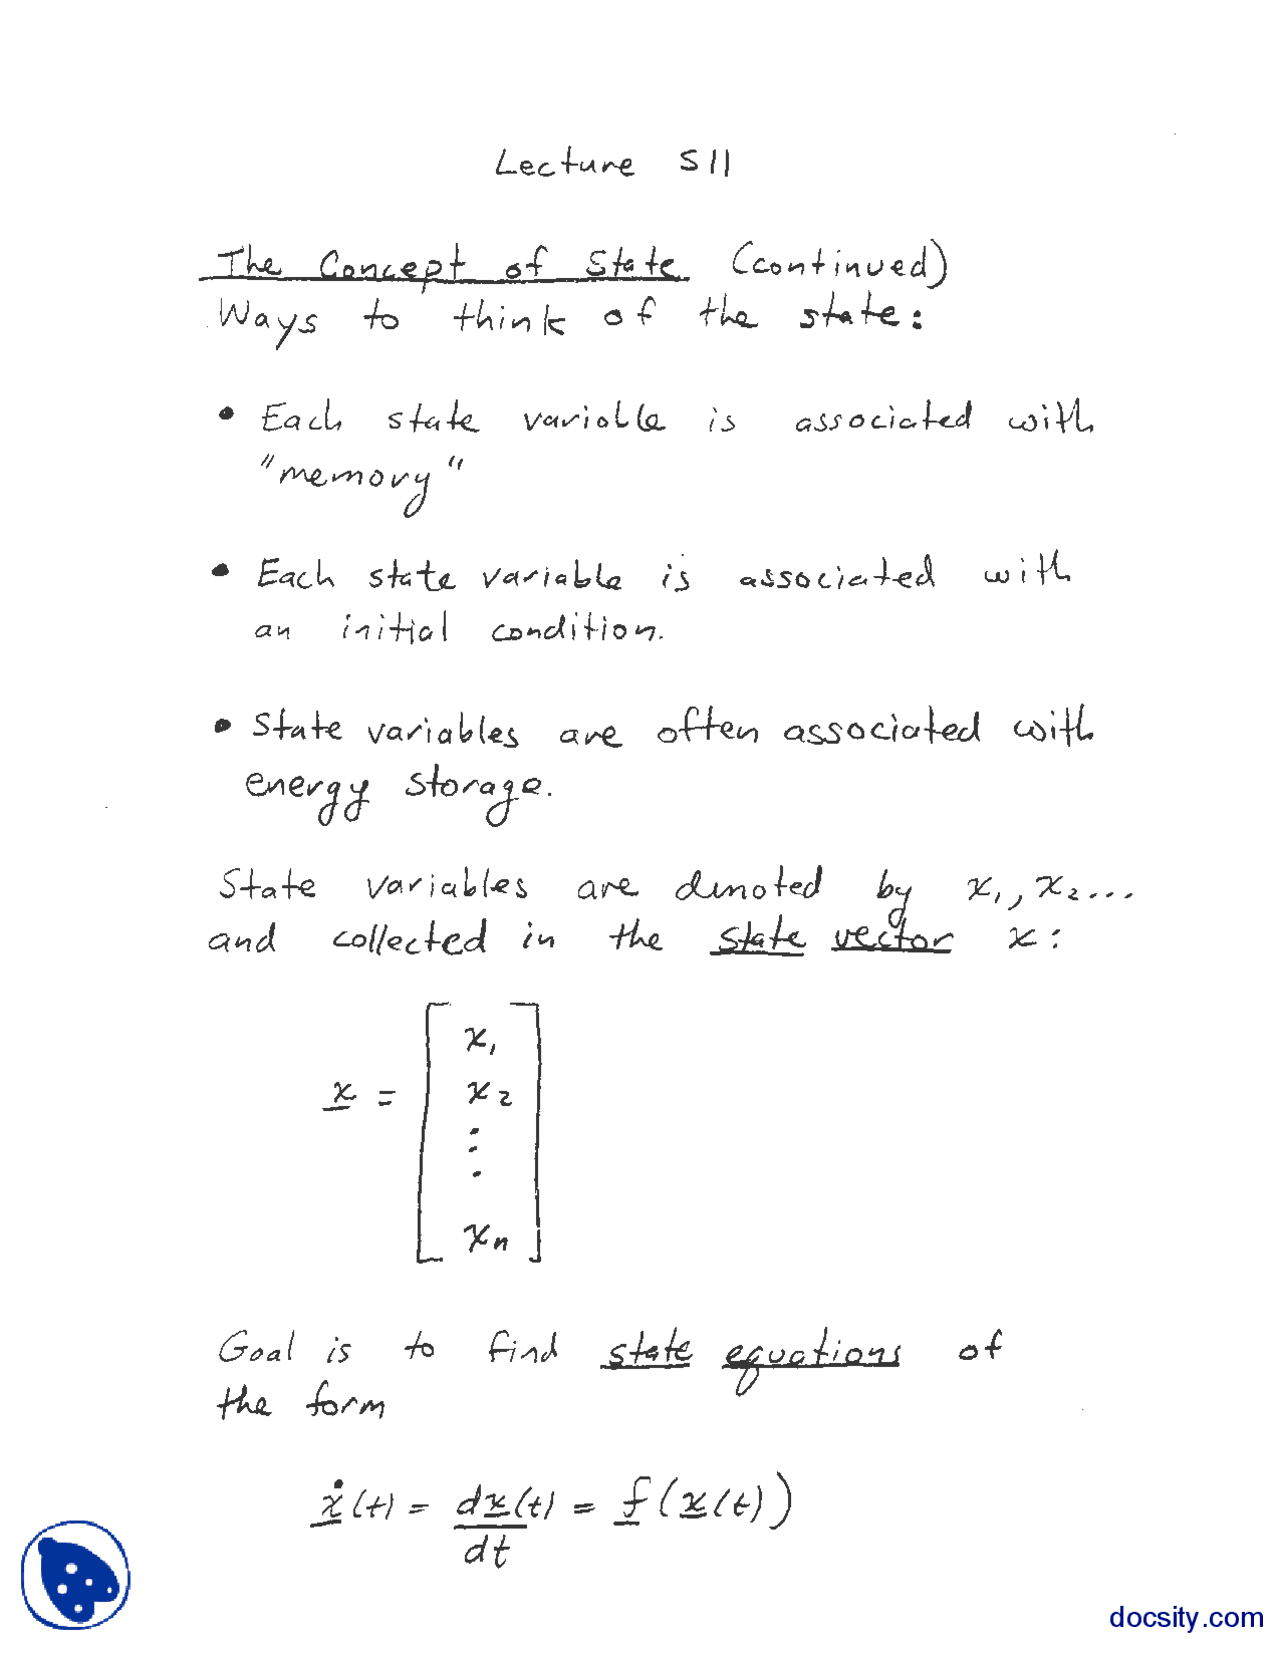 Lecture S11
The Concept of State (continued)
Ways to think of the state:
• Each state variable is associated with
"memory"
• Each state variable is associated with
an initial condition.
• State variables are often associated with
energy storage.
State variables are denoted by x₁, x₂...
and collected in the state vector x:
x = [ x₁
x₂
⋮
xₙ ]
Goal is to find state equations of
the form
ẋ(t) = dx(t)/dt = f(x(t))
docsity.com